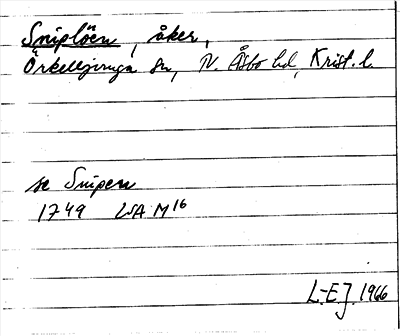 Sniplöen, åker,
Örkelljunga sn, N. Åsbo hd, Krist. l.
se Snipen
1749 LSA M16
L-E J. 1966